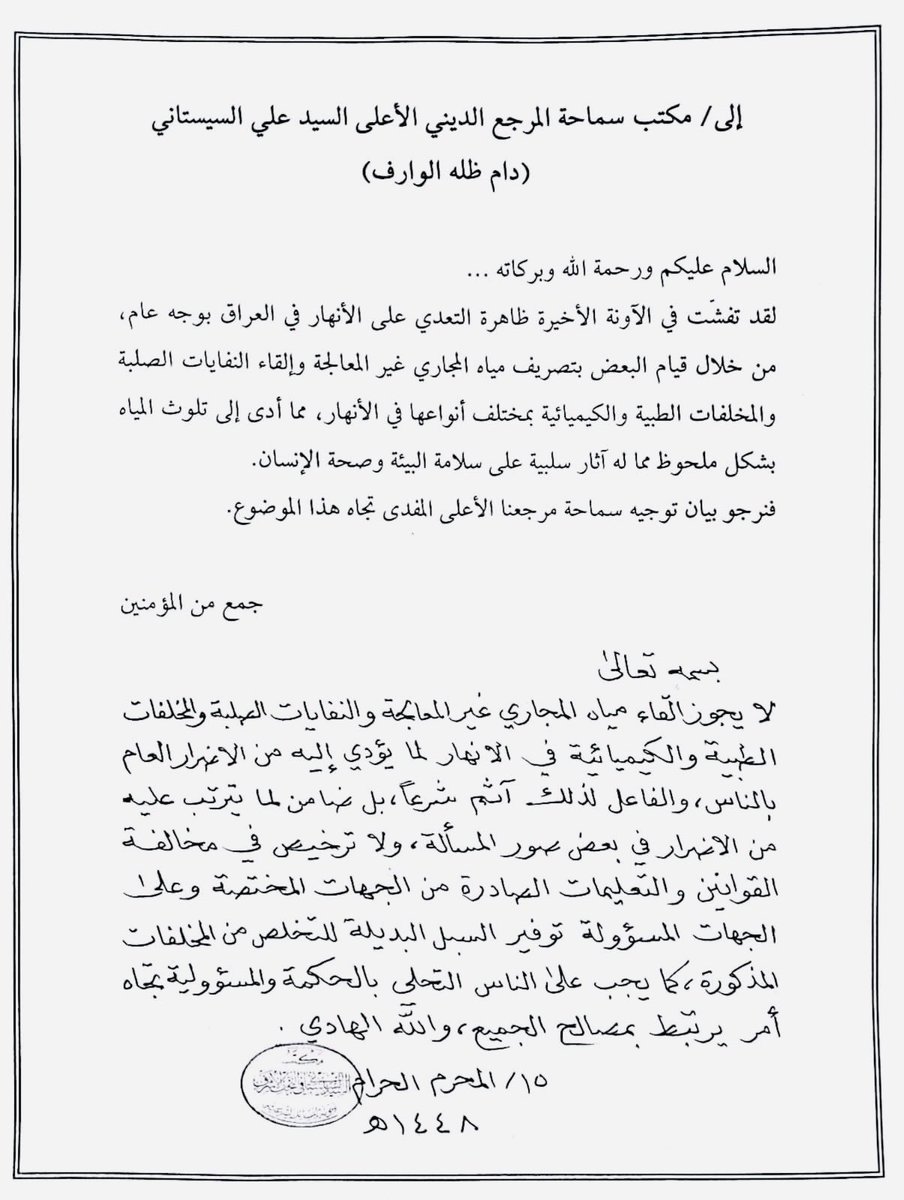 إلى/ مكتب سماحة المرجع الديني الأعلى السيد علي السيستاني
(دام ظله الوارف)
السلام عليكم ورحمة الله وبركاته ...
لقد تفشّت في الآونة الأخيرة ظاهرة التعدي على الأنهار في العراق بوجه عام،
من خلال قيام البعض بتصريف مياه المجاري غير المعالجة وإلقاء النفايات الصلبة
والمخلفات الطبية والكيميائية بمختلف أنواعها في الأنهار، مما أدى إلى تلوث المياه
بشكل ملحوظ مما له آثار سلبية على سلامة البيئة وصحة الإنسان.
فنرجو بيان توجيه سماحة مرجعنا الأعلى المفدى تجاه هذا الموضوع.
جمع من المؤمنين
بسمه تعالىٰ
لا يجوز القاء مياه المجاري غير المعالجة والنفايات الصلبة والمخلفات
الطبية والكيميائية في الانهار لما يؤدي إليه من الاضرار العام
بالناس، والفاعل لذلك آثم شرعاً، بل ضامن لما يترتب عليه
من الاضرار في بعض صور المسألة، ولا ترخيص في مخالفة
القوانين والتعليمات الصادرة من الجهات المختصة وعلىٰ
الجهات المسؤولة توفير السبل البديلة للتخلص من المخلفات
المذكورة، كما يجب علىٰ الناس التحلي بالحكمة والمسؤولية تجاه
أمر يرتبط بمصالح الجميع، والله الهادي .
١٥/ المحرم الحرام
١٤٤٨هـ
مكتب